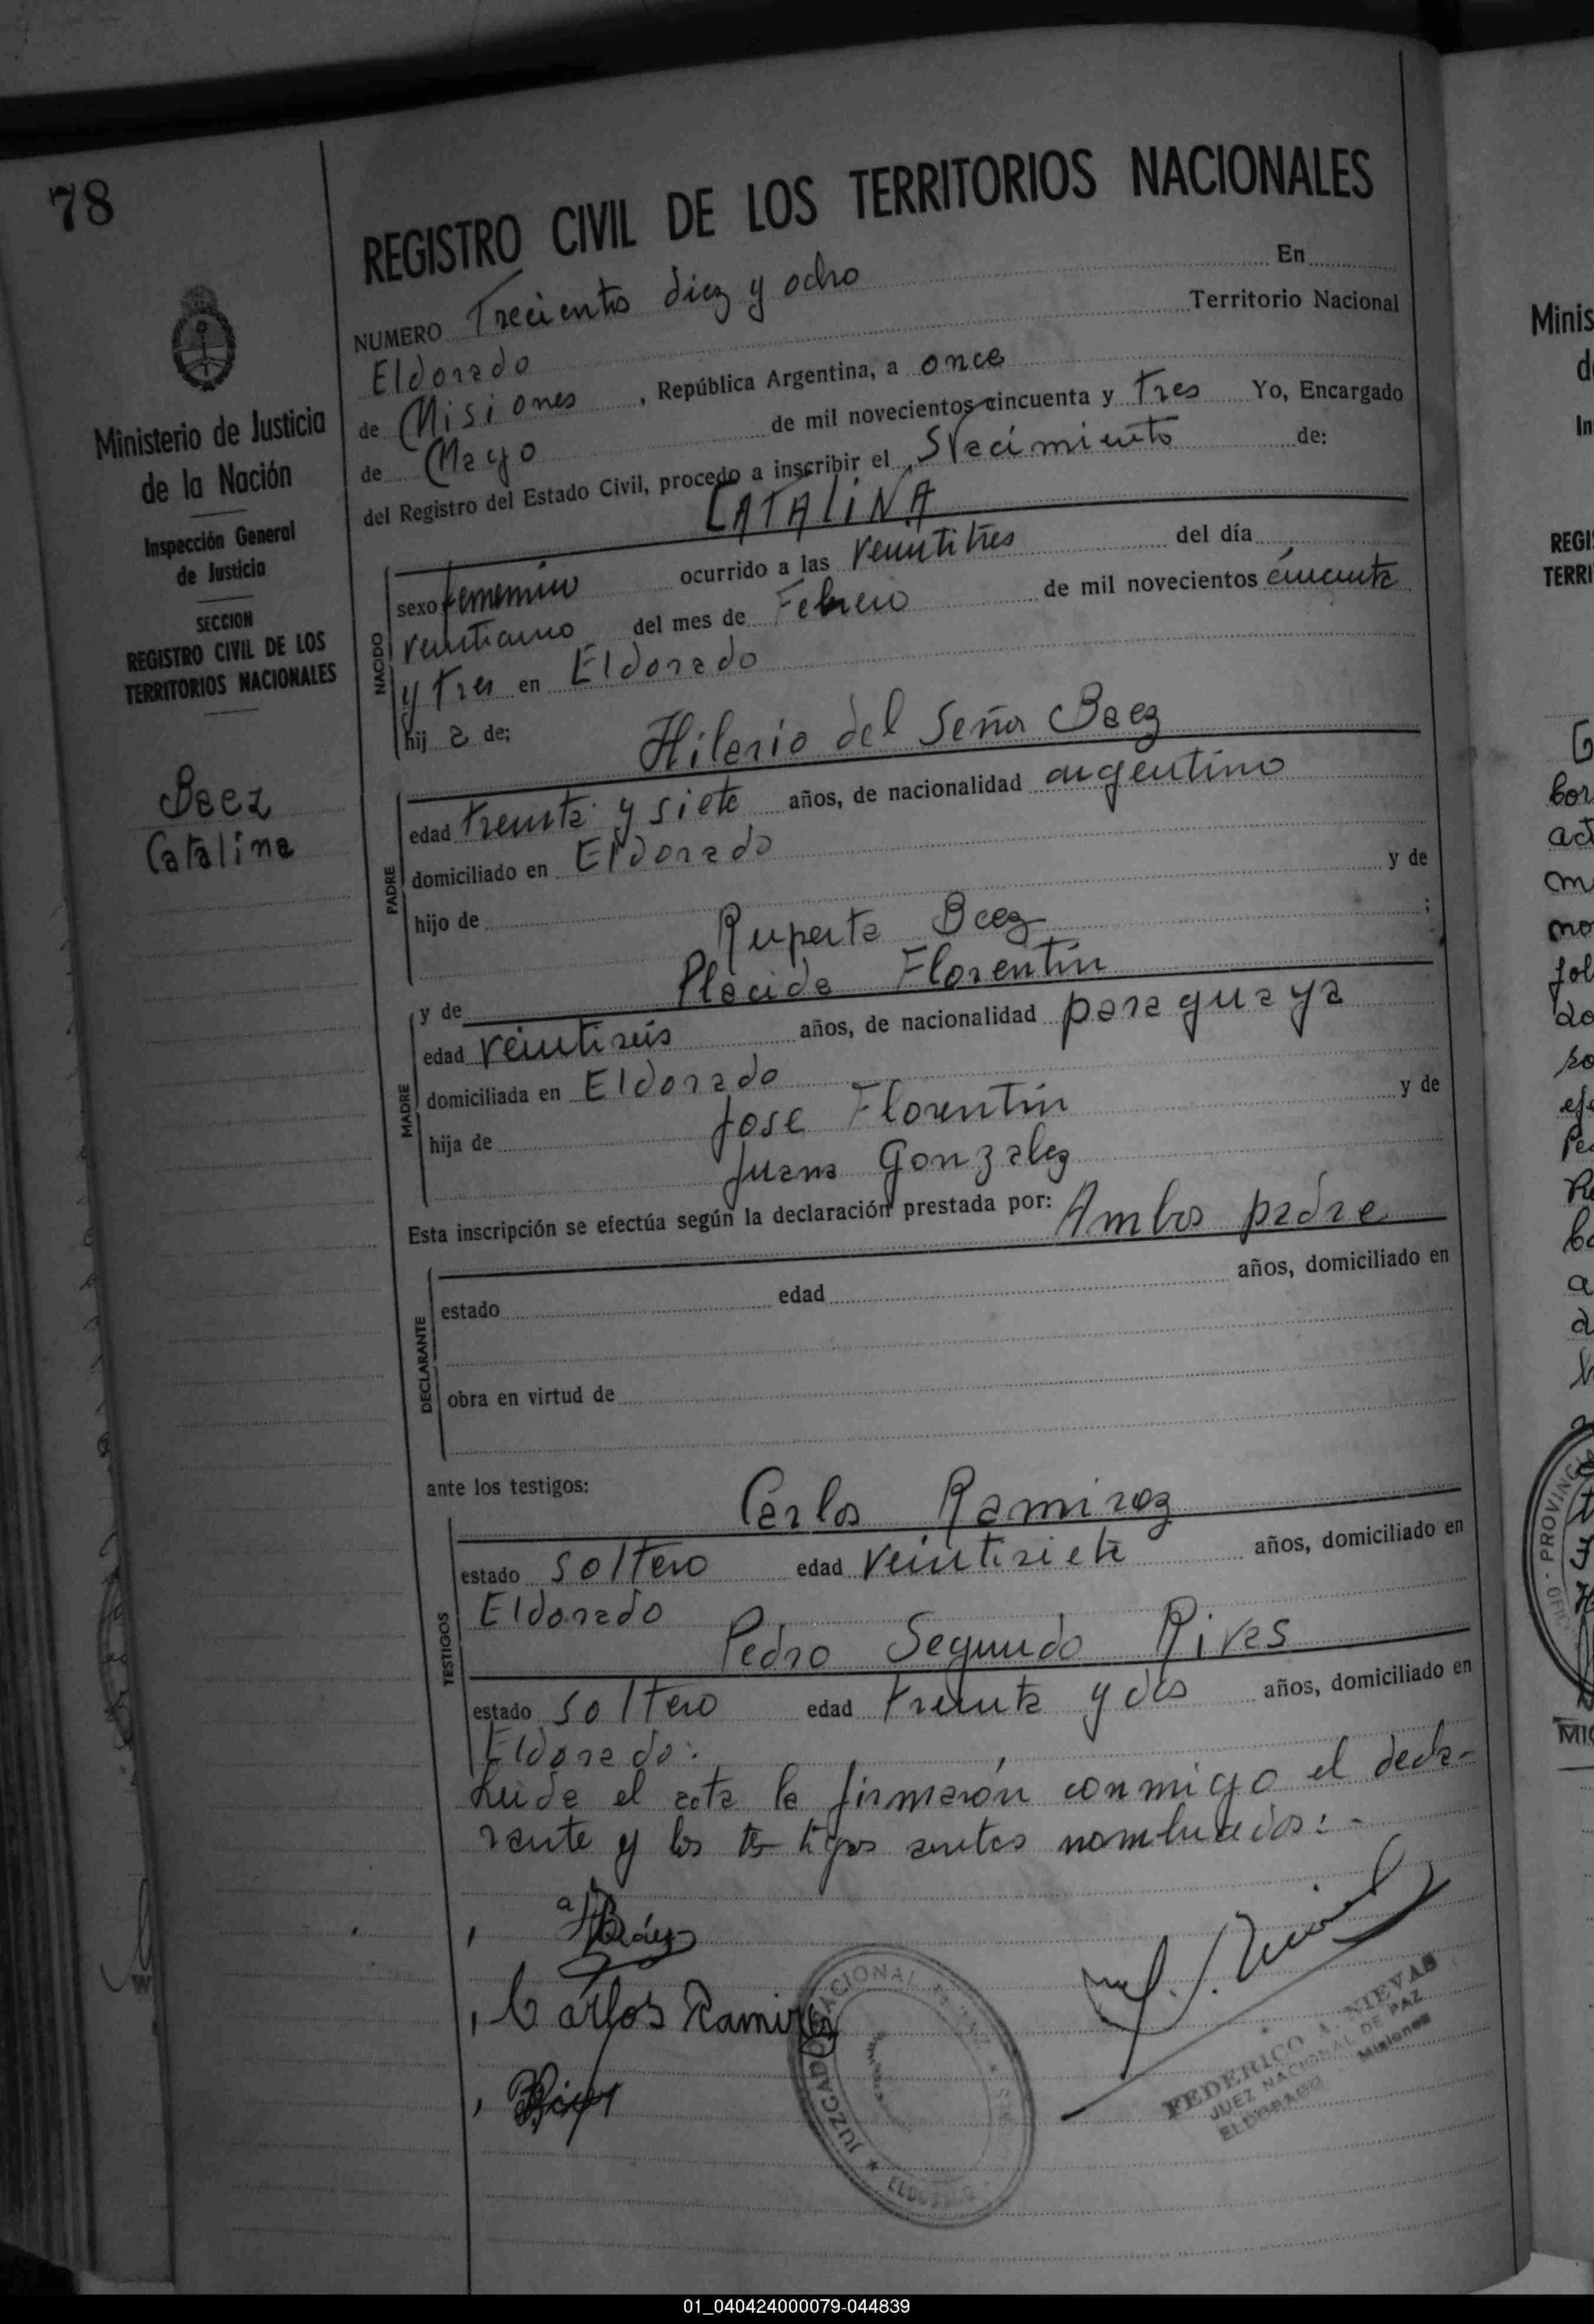 78
REGISTRO CIVIL DE LOS TERRITORIOS NACIONALES
NUMERO Trecientos diez y ocho En
Eldorado Territorio Nacional
de Misiones, República Argentina, a once
de Mayo de mil novecientos cincuenta y Tres Yo, Encargado
del Registro del Estado Civil, procedo a inscribir el Nacimiento de:
CATALINA
NACIDO
sexo femenino ocurrido a las veintitres del día
veintiuno del mes de Febrero de mil novecientos cincuenta
y Tres en Eldorado
hij a de;
Hilario del Señor Baez
PADRE
edad treinta y siete años, de nacionalidad argentino
domiciliado en Eldorado
hijo de y de
Ruperta Baez ;
y de Placida Florentin
MADRE
edad veintiseis años, de nacionalidad paraguaya
domiciliada en Eldorado
hija de Jose Florentin y de
Juana Gonzalez
Esta inscripción se efectúa según la declaración prestada por: Ambos padre
DECLARANTE
estado edad años, domiciliado en
obra en virtud de
ante los testigos: Carlos Ramirez
TESTIGOS
estado soltero edad veintisiete años, domiciliado en
Eldorado
Pedro Segundo Rivas
estado soltero edad treinta y dos años, domiciliado en
Eldorado:
Leida el acta la firmarón conmigo el decla-
rante y los testigos antes nombrados:-
HBáez
Carlos Ramirez
FEDERICO A. NIEVAS
JUEZ NACIONAL DE PAZ
ELDORADO Misiones
JUZGADO NACIONAL DE PAZ
ELDORADO
Ministerio de Justicia
de la Nación
Inspección General
de Justicia
SECCION
REGISTRO CIVIL DE LOS
TERRITORIOS NACIONALES
Baez
Catalina
Minis
REGI
TERRI
PROVINCI
01_040424000079-044839